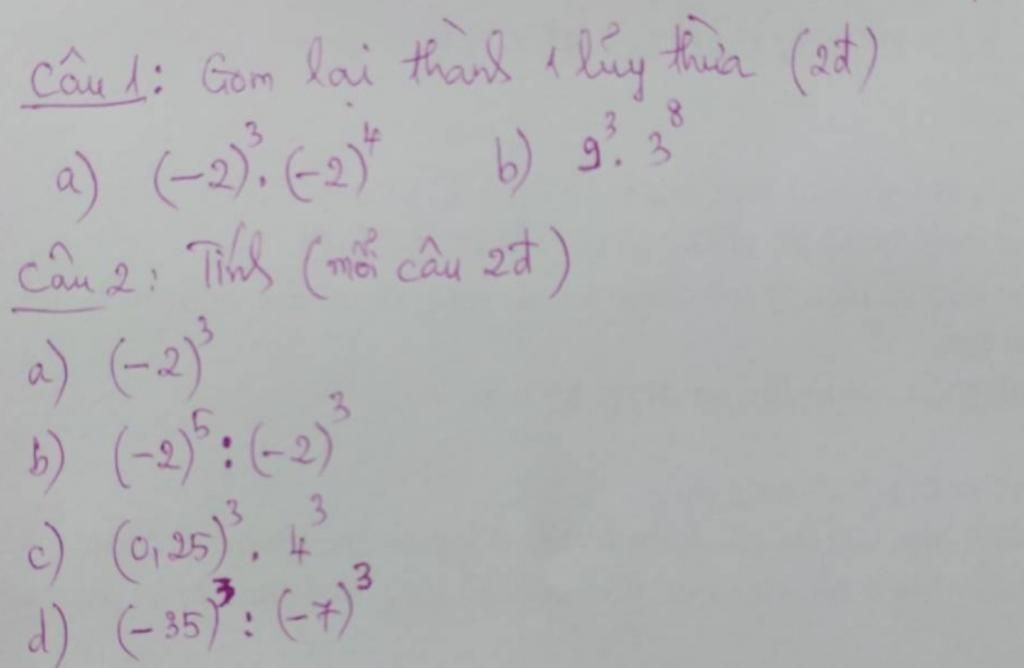 Câu 1: Gom lại thành 1 lũy thừa (2đ)
a) (-2)³.(-2)⁴ b) 9³. 3⁸
Câu 2: Tính (mỗi câu 2đ)
a) (-2)³
b) (-2)⁵:(-2)³
c) (0,25)³. 4³
d) (-35)³:(-7)³